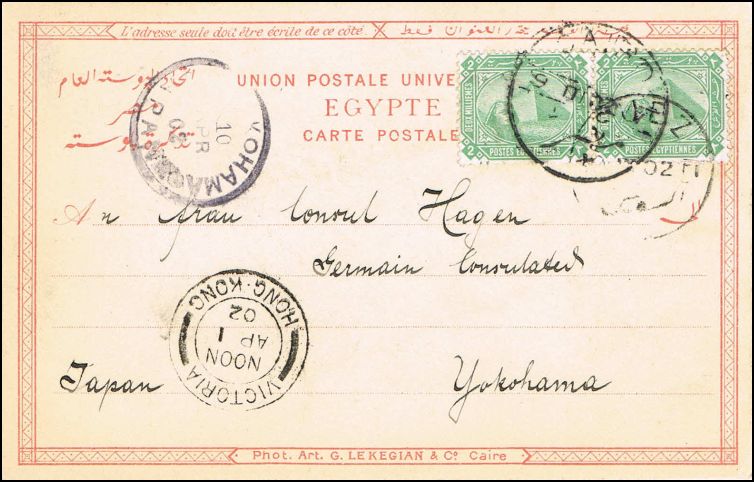 L'adresse seule doit être écrite de ce côté.
اتحاد البوسته العام
مصر
تذكرة بوسته
UNION POSTALE UNIVE
EGYPTE
CARTE POSTALE
2 2
DEUX MILLIEMES
POSTES EGYPTIENNES
2 2
POSTES EGYPTIENNES
CAIRO
YOKOHAMA
10
APR
An Frau Consul Hagen
German Consulated
VICTORIA
HONG-KONG
NOON
AP 1
02
Japan Yokohama
Phot. Art. G. LEKEGIAN & Co. Caire